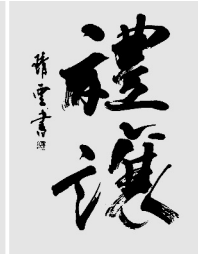 禮讓
靖雲書